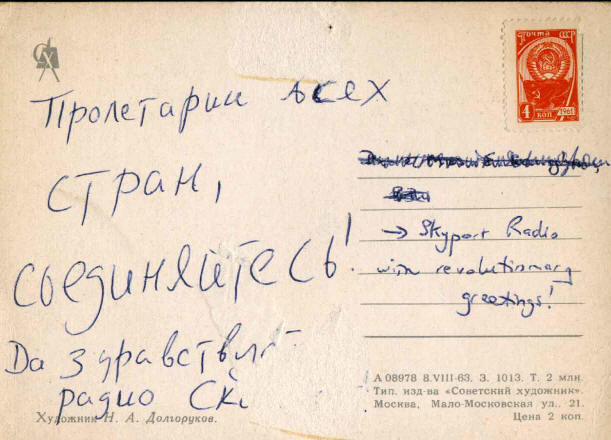 Пролетарии всех
стран,
соединяйтесь!
Да здравствует
радио Ски
Художник Н. А. Долгоруков.
Почта СССР
4
коп
1961
→ Skyport Radio
with revolutionary
greetings!
А 08978 8.VIII-63. З. 1013. Т. 2 млн.
Тип. изд-ва «Советский художник».
Москва, Мало-Московская ул., 21.
Цена 2 коп.